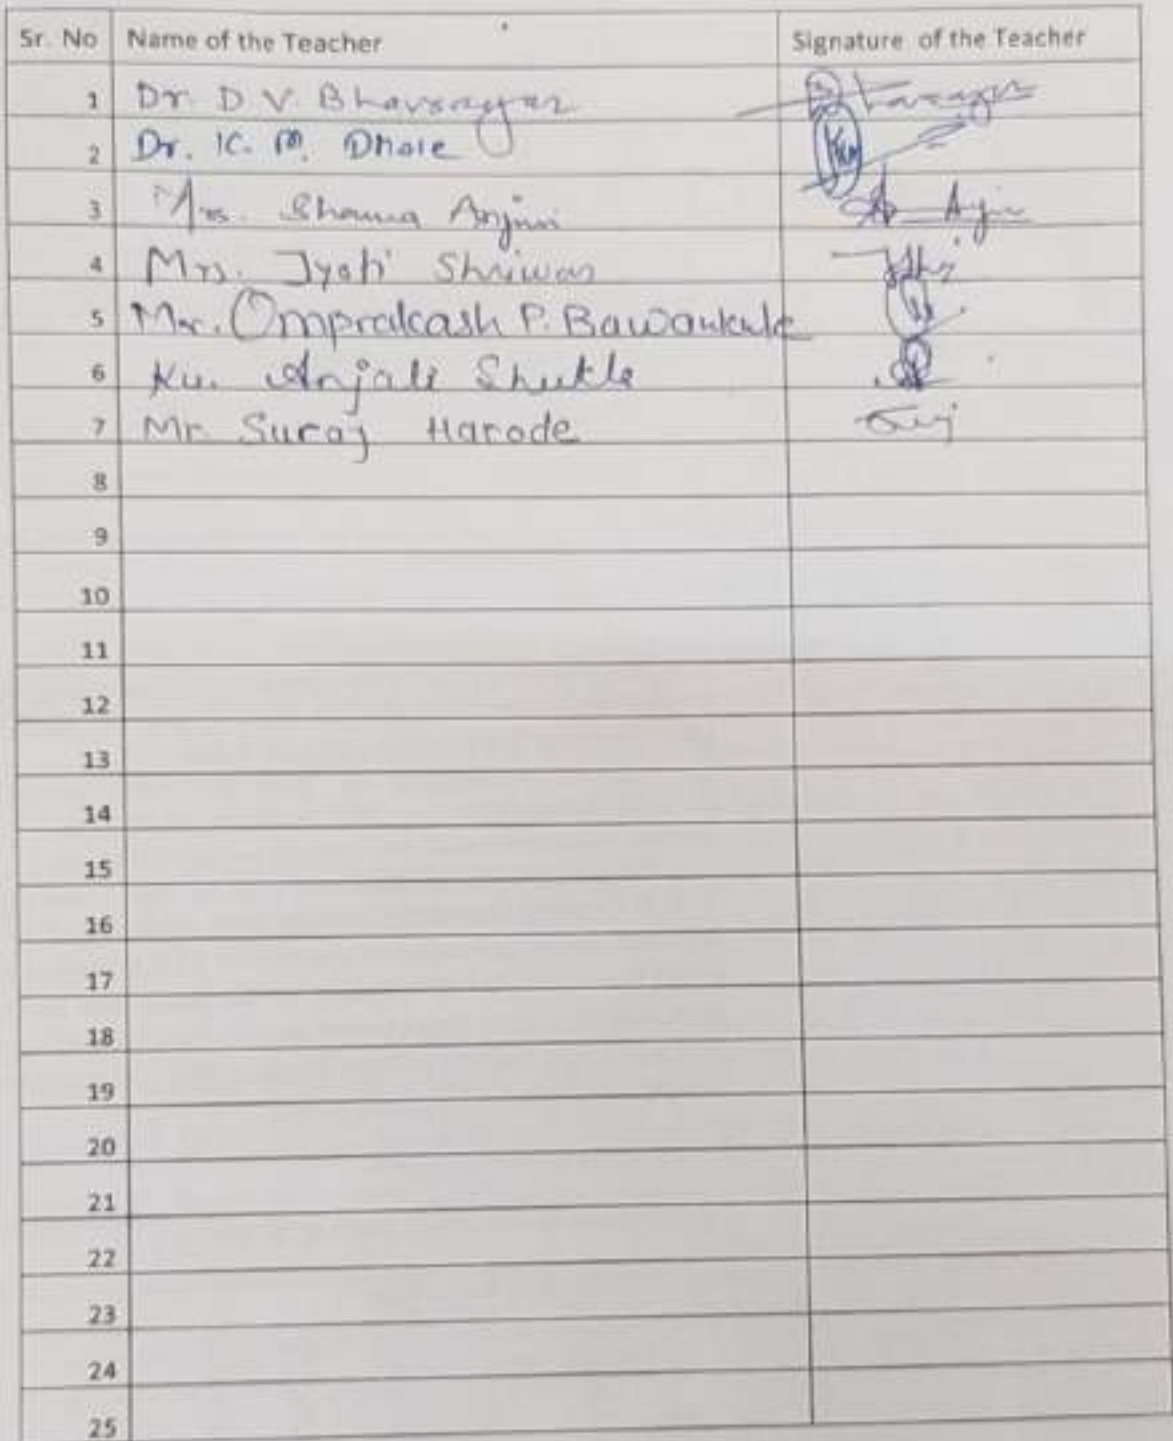 Sr. No Name of the Teacher Signature of the Teacher
1 Dr. D V. Bhavsagar
2 Dr. K. M. Dhole
3 Mrs. Shama Anjum
4 Mrs. Jyoti Shriwas
5 Mr. Omprakash P. Bawankule
6 Ku. Anjali Shukla
7 Mr Suraj Harode
8
9
10
11
12
13
14
15
16
17
18
19
20
21
22
23
24
25